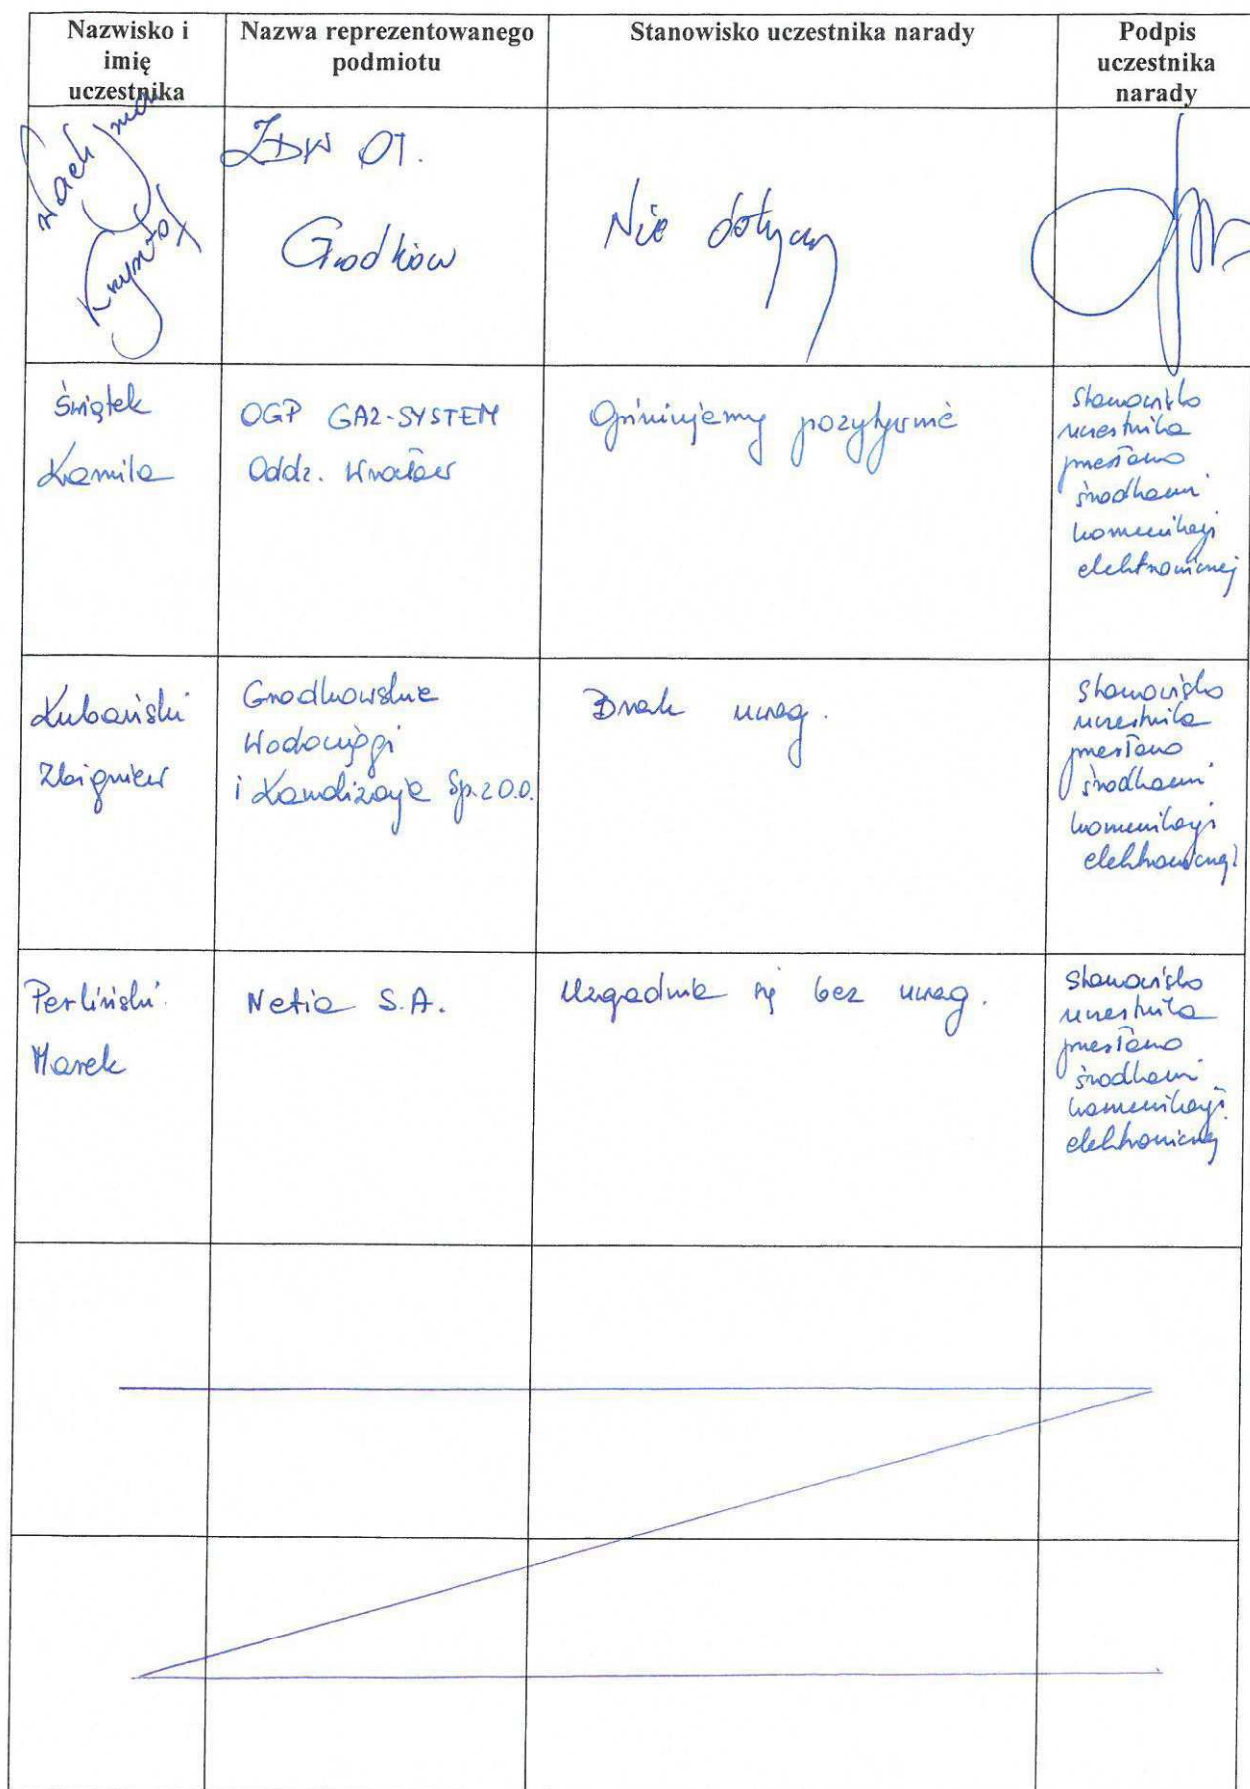 Nazwisko i
imię
uczestnika
Nazwa reprezentowanego
podmiotu
Stanowisko uczestnika narady
Podpis
uczestnika
narady
Krzysztof
ZDW OT.
Grodków
Nie dotyczy
Świątek
Kamila
OGP GAZ-SYSTEM
Oddz. Wrocław
Opiniujemy pozytywnie
Stanowisko
uczestnika
przesłano
środkami
komunikacji
elektronicznej
Kubański
Zbigniew
Grodkowskie
Wodociągi
i Kanalizacja Sp. z o.o.
Brak uwag.
Stanowisko
uczestnika
przesłano
środkami
komunikacji
elektronicznej
Perliński
Marek
Netia S.A.
Uzgadnia się bez uwag.
Stanowisko
uczestnika
przesłano
środkami
komunikacji
elektronicznej